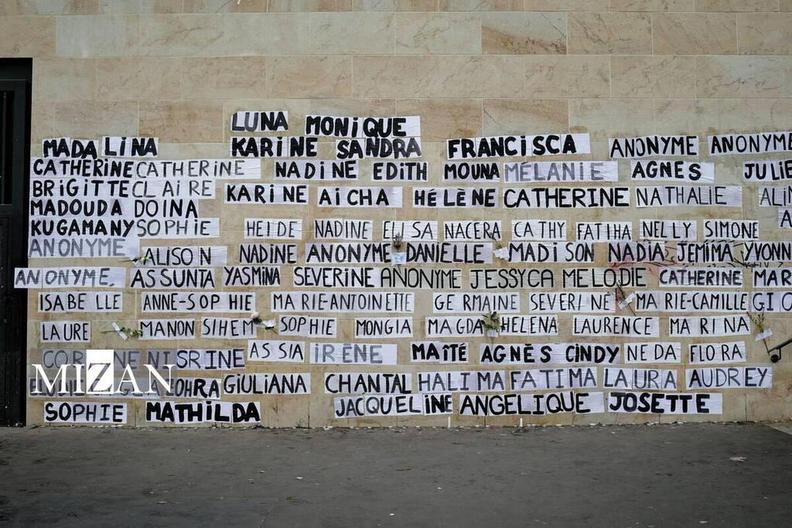 LUNA MONIQUE
MADALINA KARINE SANDRA FRANCISCA ANONYME ANONYME
CATHERINE CATHERINE NADINE EDITH MOUNA MÉLANIE AGNES JULIE
BRIGITTE CLAIRE KARINE AICHA HÉLÈNE CATHERINE NATHALIE
MADOUDA DOINA
KUGAMANY SOPHIE HEIDE NADINE ELISA NACERA CATHY FATIHA NELLY SIMONE
ANONYME ALISON NADINE ANONYME DANIELLE MADISON NADIA JEMIMA YVONN
ANONYME. ASSUNTA YASMINA SEVERINE ANONYME JESSYCA MELODIE CATHERINE MAR
ISABELLE ANNE-SOPHIE MARIE-ANTOINETTE GERMAINE SEVERINE MARIE-CAMILLE GIO
LAURE MANON SIHEM SOPHIE MONGIA MAGDA HELENA LAURENCE MARINA
NISRINE ASSIA IRÈNE MAÏTÉ AGNÈS CINDY NEDA FLORA
MIZAN GIULIANA CHANTAL HALIMA FATIMA LAURA AUDREY
SOPHIE MATHILDA JACQUELINE ANGELIQUE JOSETTE